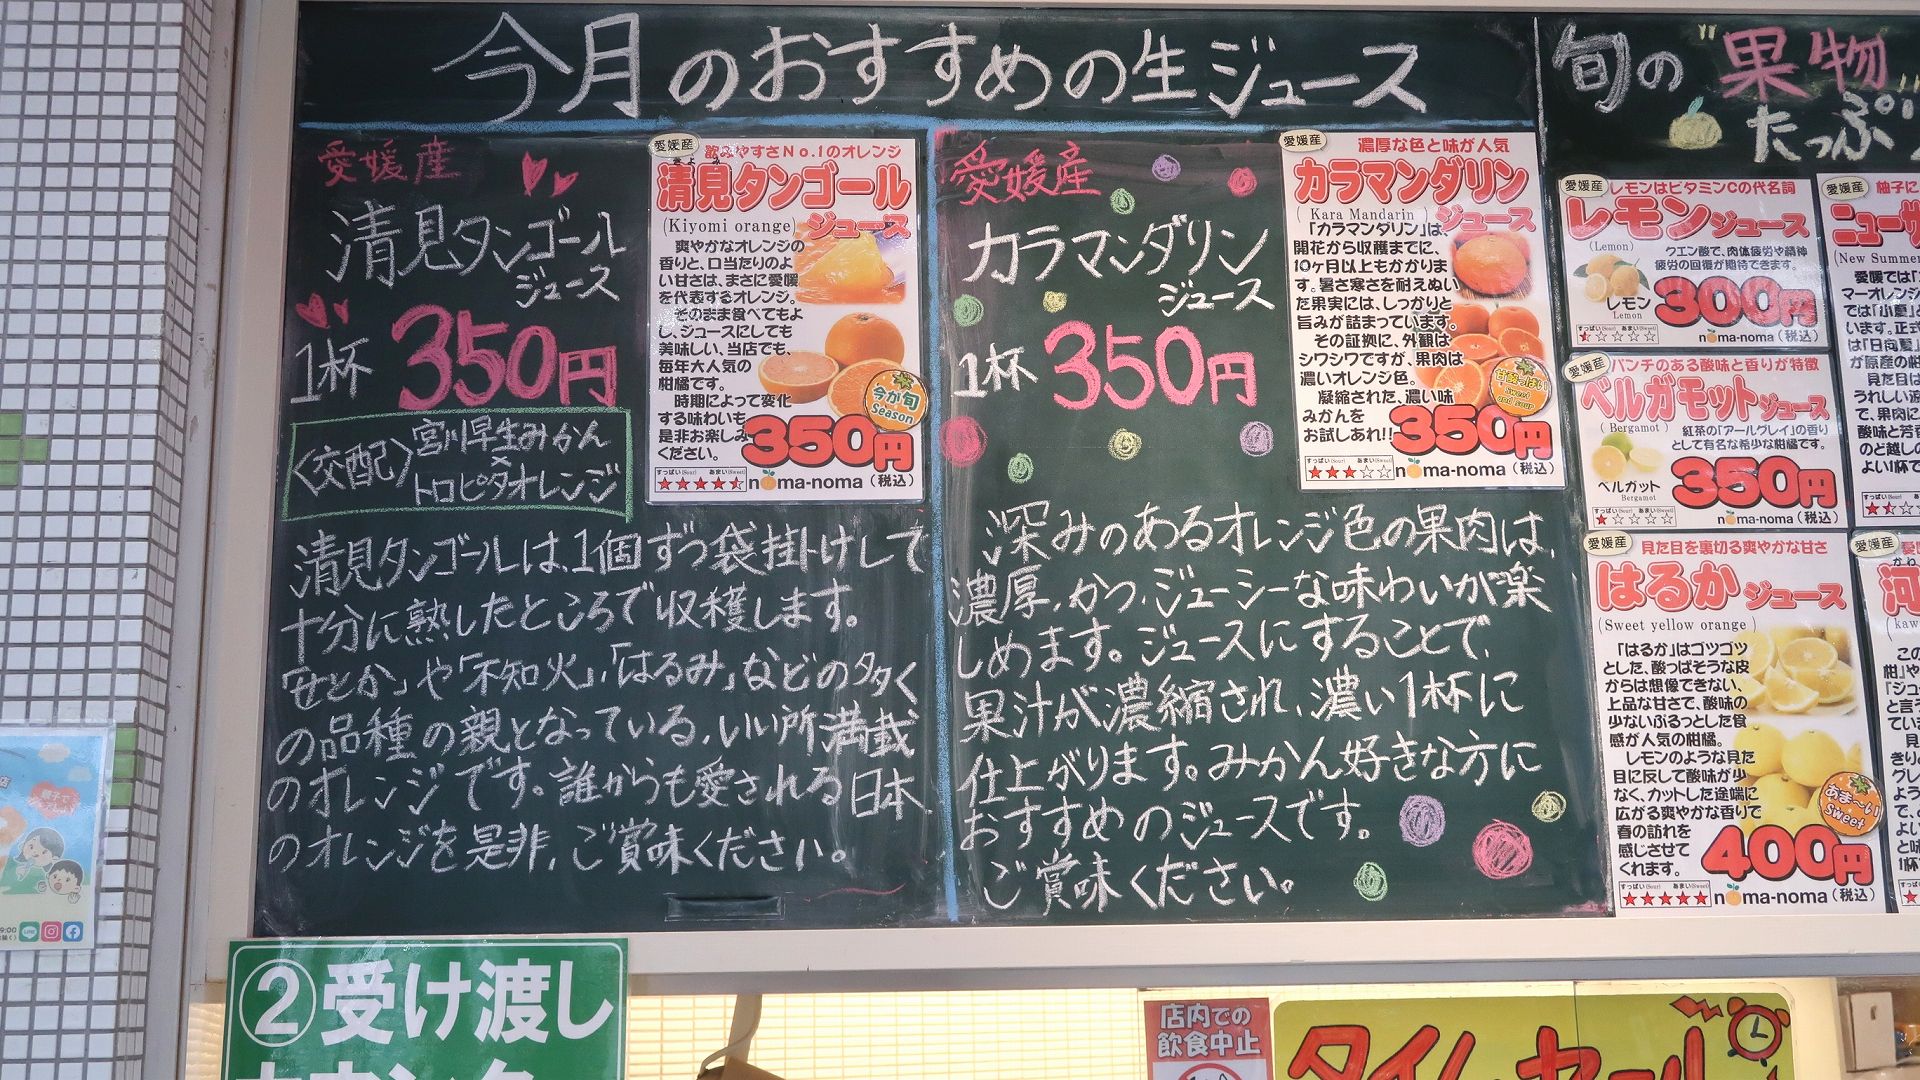 今月のおすすめの生ジュース
愛媛産
清見タンゴール
ジュース
1杯 350円
〈交配〉
宮川早生みかん
×
トロビタオレンジ
清見タンゴールは、1個ずつ袋掛けして
十分に熟したところで収穫します。
「せとか」や「不知火」、「はるみ」などの多く
の品種の親となっている、いい所満載
のオレンジです。誰からも愛される日本
のオレンジを是非、ご賞味ください。
愛媛産
飲みやすさNo.1のオレンジ
きよみ
清見タンゴール
(Kiyomi orange) ジュース
爽やかなオレンジの
香りと、口当たりのよ
い甘さは、まさに愛媛
を代表するオレンジ。
そのまま食べてもよ
し、ジュースにしても
美味しい、当店でも、
毎年大人気の
柑橘です。
時期によって変化
する味わいも
是非お楽しみ
ください。
今が旬
Season
350円
すっぱい(Sour) あまい(Sweet)
noma-noma (税込)
愛媛産
カラマンダリン
ジュース
1杯 350円
深みのあるオレンジ色の果肉は、
濃厚、かつ、ジューシーな味わいが楽
しめます。ジュースにすることで、
果汁が濃縮され、濃い1杯に
仕上がります。みかん好きな方に
おすすめのジュースです。
ご賞味ください。
愛媛産
濃厚な色と味が人気
カラマンダリン
( Kara Mandarin ) ジュース
「カラマンダリン」は、
開花から収穫までに、
10ヶ月以上もかかりま
す。暑さ寒さを耐えぬい
た果実には、しっかりと
旨みが詰まっています。
その証拠に、外観は
シワシワですが、果肉は
濃いオレンジ色。
凝縮された、濃い味
みかんを
お試しあれ!!
甘酸っぱい
sweet
and sour
350円
すっぱい(Sour) あまい(Sweet)
noma-noma (税込)
旬の"果物"
たっぷり
愛媛産
レモンはビタミンCの代名詞
レモンジュース
(Lemon)
クエン酸で、肉体疲労や精神
疲労の回復が期待できます。
レモン
Lemon
300円
すっぱい(Sour) あまい(Sweet)
noma-noma (税込)
愛媛産
パンチのある酸味と香りが特徴
ベルガモットジュース
( Bergamot )
紅茶の「アールグレイ」の香り
として有名な希少な柑橘です。
ベルガット
Bergamot
350円
すっぱい(Sour) あまい(Sweet)
noma-noma (税込)
愛媛産
見た目を裏切る爽やかな甘さ
はるかジュース
(Sweet yellow orange )
「はるか」はゴツゴツ
とした、酸っぱそうな皮
からは想像できない、
上品な甘さで、酸味の
少ないぷるっとした食
感が人気の柑橘。
レモンのような見た
目に反して酸味が少
なく、カットした途端に
広がる爽やかな香りで
春の訪れを
感じさせて
くれます。
あま〜い
Sweet
400円
すっぱい(Sour) あまい(Sweet)
noma-noma (税込)
愛媛産
柚子に
ニューサ
(New Summer
愛媛では「
マーオレンジ
では「小夏」と
います。正式
は「日向夏」
が原産の柑
見た目は
で、果肉に
酸味と芳香
のど越しの
よい1杯で
愛媛産
河
(kaw
②受け渡し
店内での
飲食中止
タイムセール